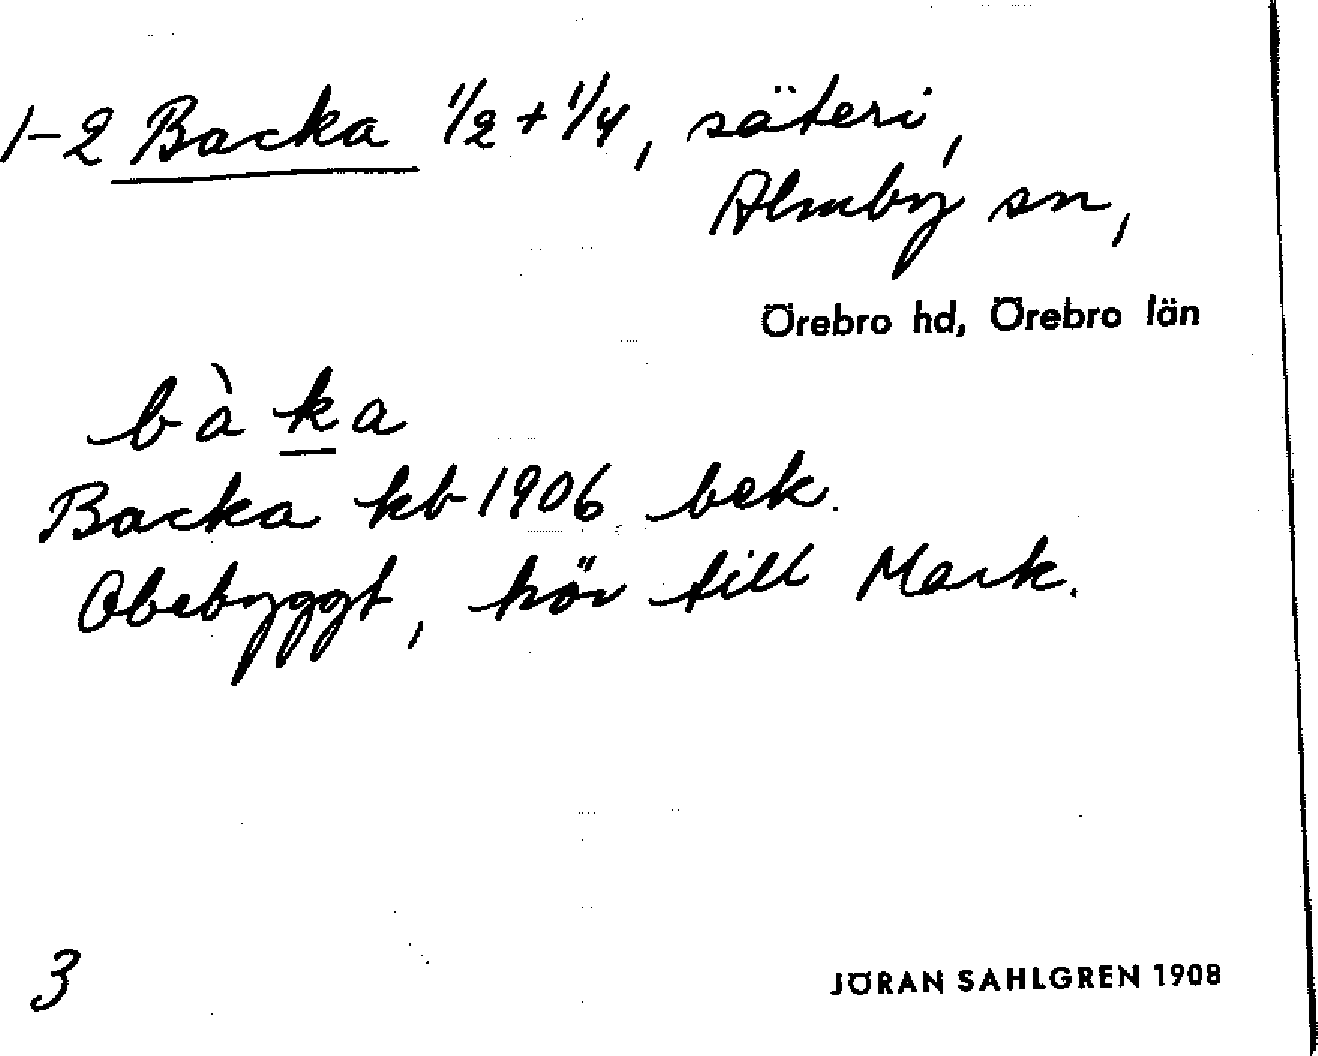 1-2 Backa 1/2 + 1/4, säteri,
Almby sn,
Örebro hd, Örebro län
bàka
Backa kb 1906 bek.
Obebyggt, hör till Mark.
3
JÖRAN SAHLGREN 1908